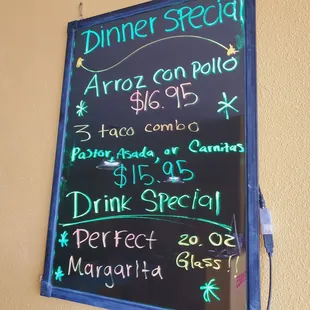 Dinner Special
Arroz con pollo
$16.95
3 taco combo
Pastor, Asada, or Carnitas
$15.95
Drink Special
Perfect 20. Oz
Margarita Glass!!